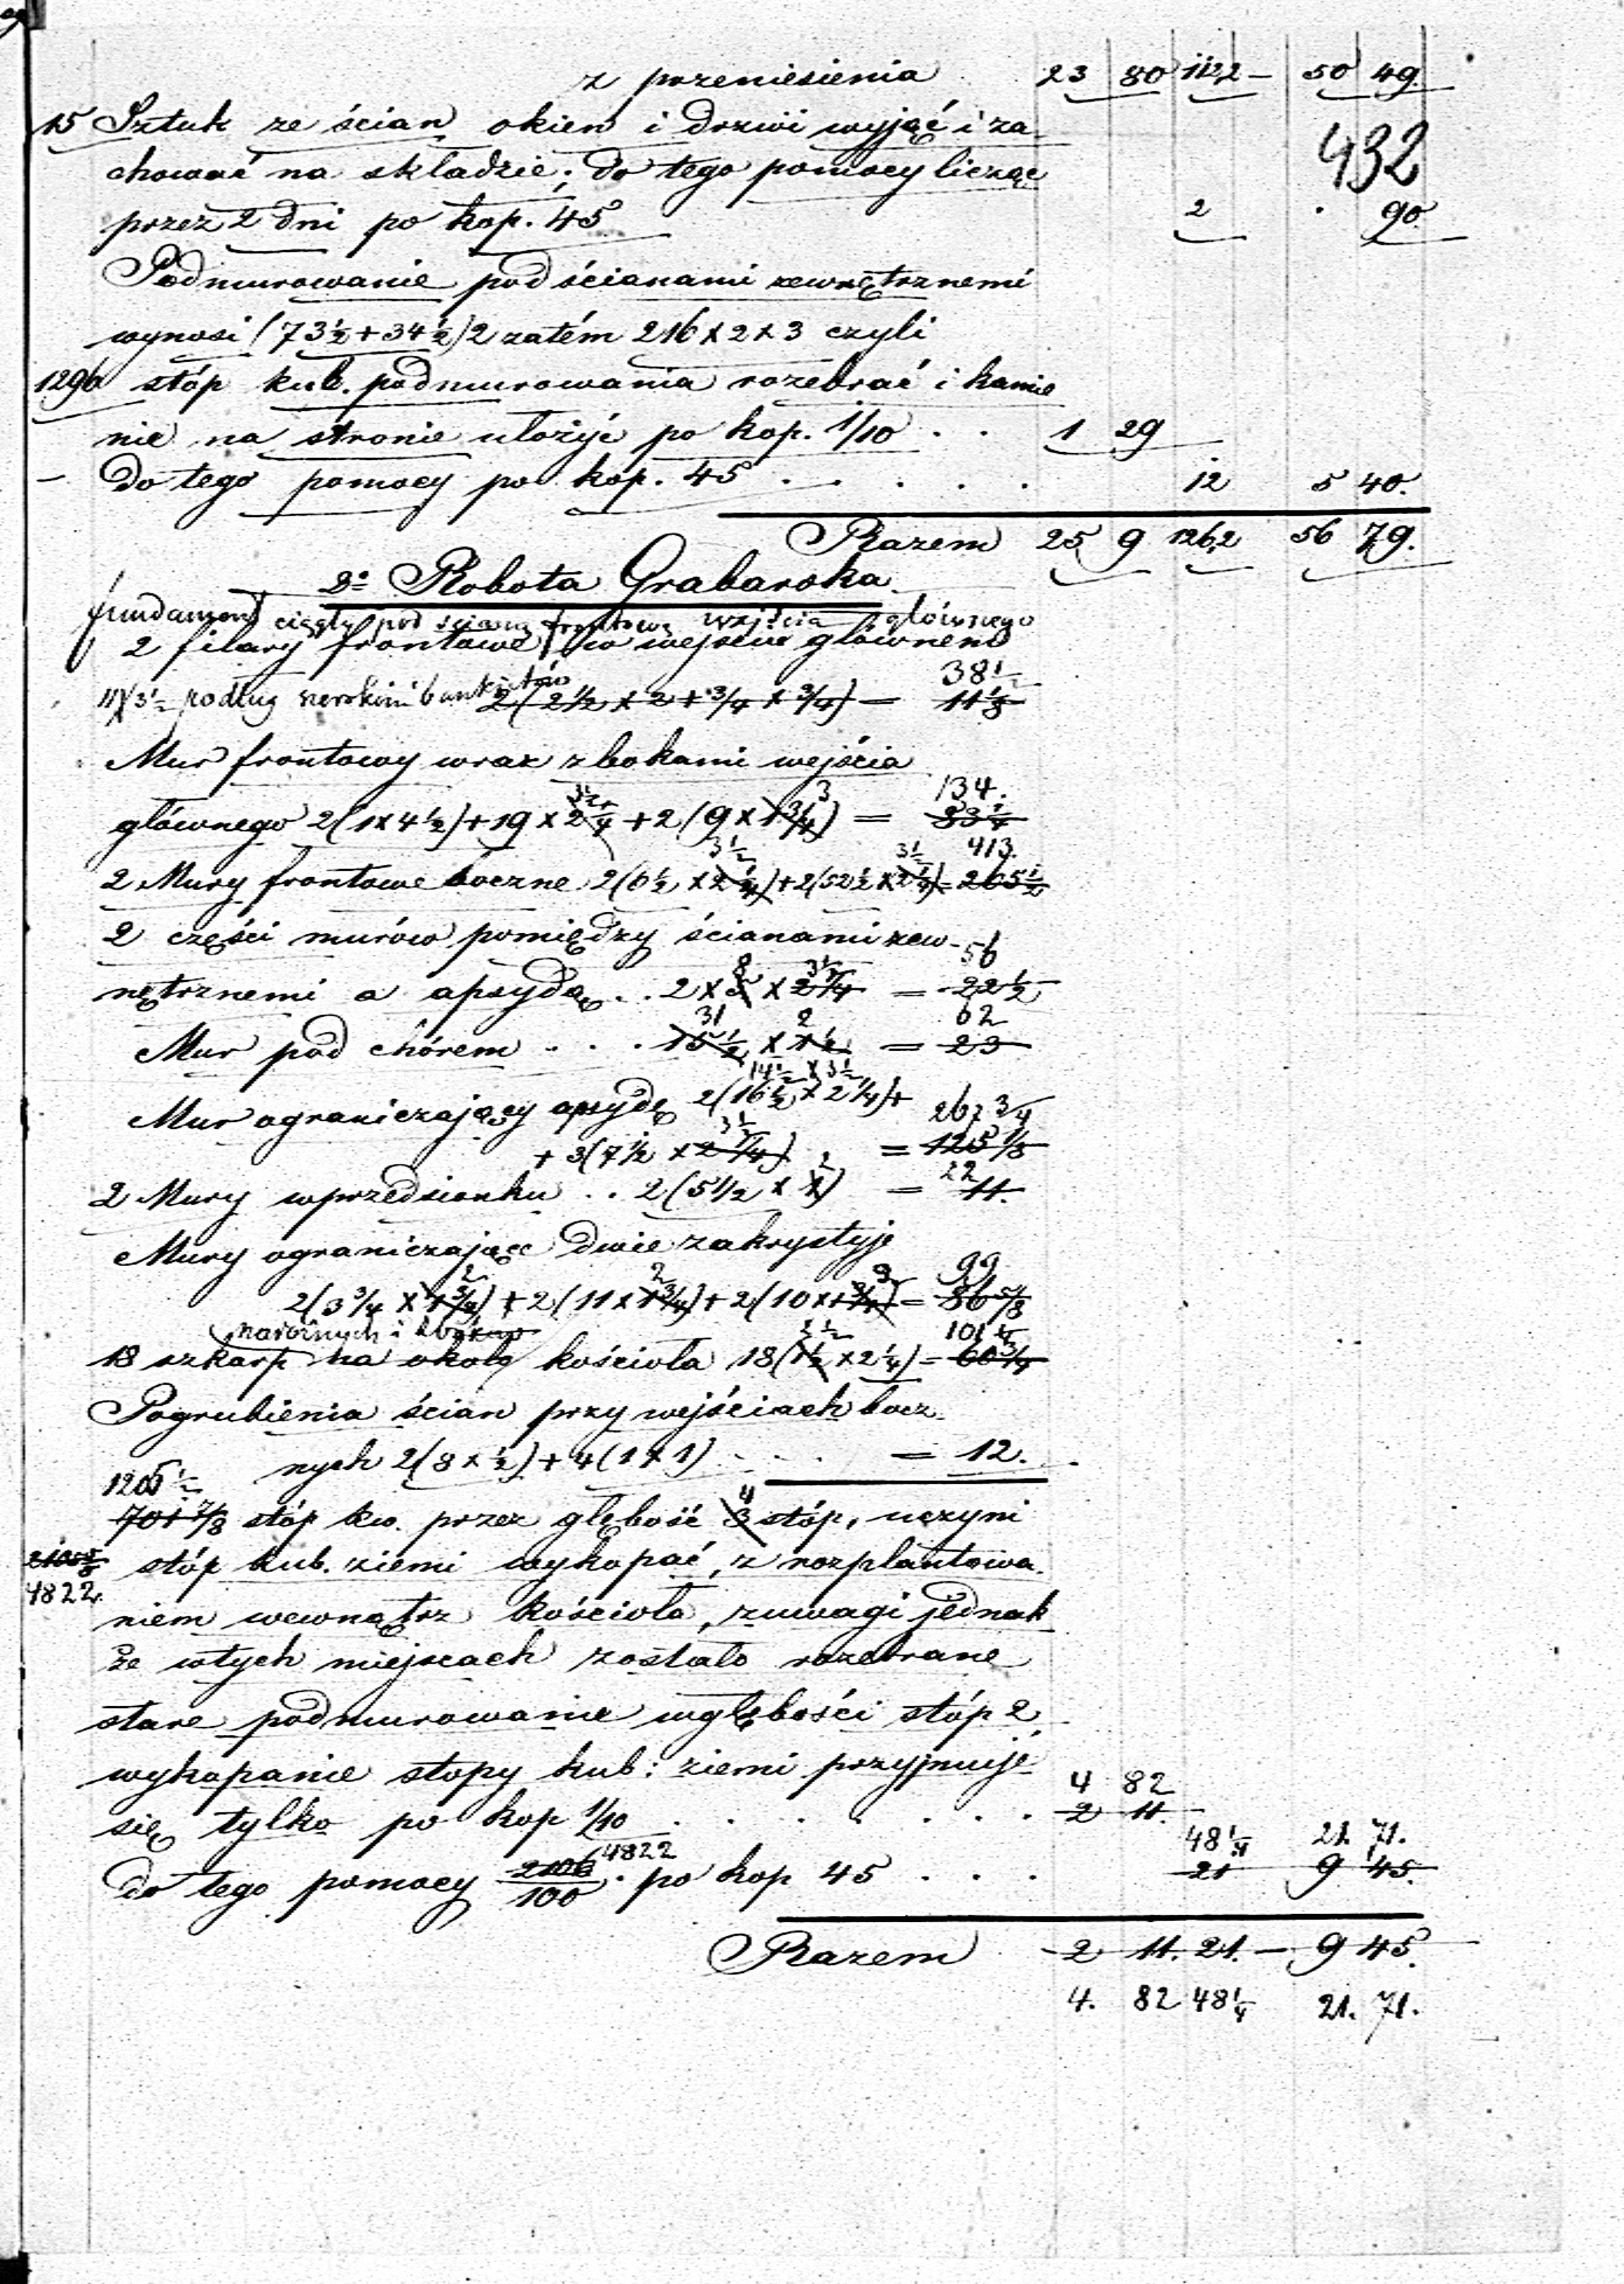 z przeniesienia 23 80 112,2 – 50 49.
15 Sztuk ze ścian okien i drzwi wyjąć i za-
432
chować na składzie; do tego pomocy licząc
przez 2 dni po kop. 45 2 . 90
Podmurowanie pod ścianami zewnętrznemi
wynosi (73½ + 34½)2 zatém 216 x 2 x 3 czyli
1296 stóp kub. podmurowania rozebrać i kamie
nie na stronie ułożyć po kop. 1/10 . . 1 29
– do tego pomocy po kop. 45 . . . . . 12 5 40.
Razem 25 9 126,2 56 79.
2º Robota Grabarska
fundament ciągły pod ścianą frontową wejścia głównego
2 filary frontowe w wejściu głównem
38½
11 x 3½ podług szerokim bankietów 2(2½ x 2 + ¾ x ¾) = 11⅛
Mur frontowy wraz z bokami wejścia
3½ 3 134.
głównego 2(1 x 4½) + 19 x 2¼ + 2(9 x 1¾) = 83¼
3½ 3½ 413.
2 Mury frontowe boczne 2(6½ x 2¼) + 2(52½ x 2¼) = 265½
2 części murów pomiędzy ścianami zew-
8 3½ 56
nętrznemi a apsydą . . 2 x 5 x 2¼ = 22½
31 2 62
Mur pod chórem . . . 15½ x 1½ = 23
14½ x 3½
Mur ograniczający apsydę 2(16½ x 2¼) +
3½ 267¾
+ 3(7½ x 2¼) = 125⅛
2 22
2 Mury w przedsionku . . 2(5½ x 1) = 11.
Mury ograniczające dwie zakrystyje
2 2 2 99
2(3¾ x 1¾) + 2(11 x 1¾) + 2(10 x 1¾) = 86⅝
narożnych i 2½ 101¼
18 szkarp na około kościoła 18(1½ x 2¼) = 60¾
Pogrubienia ścian przy wejściach bocz-
nych 2(8 x ½) + 4(1 x 1) . . . = 12.
1205½ 4
701⅞ stóp kw. przez głębość 3 stóp, uczyni
2105⅝ stóp kub. ziemi wykopać, z rozplantowa-
4822.
niem wewnątrz kościoła, z uwagi jednak
że w tych miejscach zostało rozebrane
stare podmurowanie w głębości stóp 2,
wykopanie stopy kub: ziemi przyjmuje
4 82
się tylko po kop 1/10 . . . . . . . 2 11.
4822 48¼ 21. 71.
do tego pomocy 2106/100 . po kop 45 . . . 21 9 45.
Razem 2 11. 21. – 9 45.
4. 82 48¼ 21. 71.